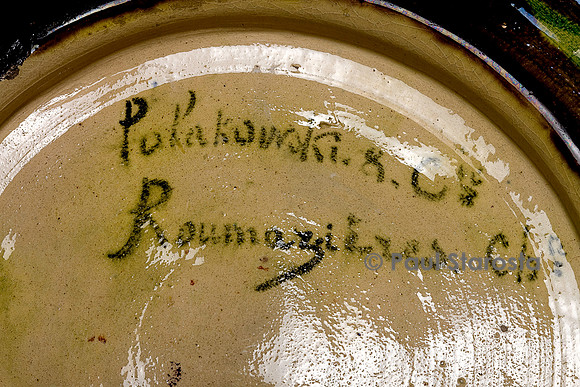 Polakowski. & . Cie
Roumazières. Ch
© Paul Starosta